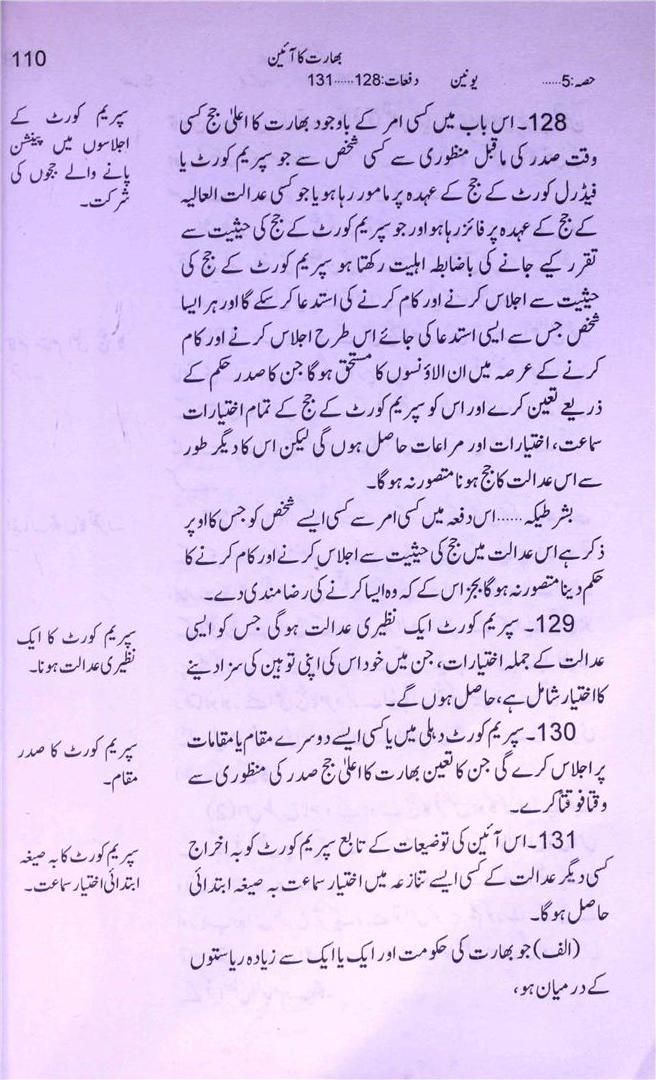 110
بھارت کا آئین
حصہ:5...... یونین دفعات:128......131
سپریم کورٹ کے
اجلاسوں میں پنشن
پانے والے ججوں کی
شرکت۔
128۔ اس باب میں کسی امر کے باوجود بھارت کا اعلیٰ جج کسی
وقت صدر کی ماقبل منظوری سے کسی شخص سے جو سپریم کورٹ یا
فیڈرل کورٹ کے جج کے عہدہ پر مامور رہا ہو یا جو کسی عدالت العالیہ
کے جج کے عہدہ پر فائز رہا ہو اور جو سپریم کورٹ کے جج کی حیثیت سے
تقرر کیے جانے کی باضابطہ اہلیت رکھتا ہو سپریم کورٹ کے جج کی
حیثیت سے اجلاس کرنے اور کام کرنے کی استدعا کر سکے گا اور ہر ایسا
شخص جس سے ایسی استدعا کی جائے اس طرح اجلاس کرنے اور کام
کرنے کے عرصہ میں ان الاؤنسوں کا مستحق ہوگا جن کا صدر حکم کے
ذریعے تعین کرے اور اس کو سپریم کورٹ کے جج کے تمام اختیارات
سماعت، اختیارات اور مراعات حاصل ہوں گی لیکن اس کا دیگر طور
سے اس عدالت کا جج ہونا متصور نہ ہوگا۔
بشرطیکہ......اس دفعہ میں کسی امر سے کسی ایسے شخص کو جس کا اوپر
ذکر ہے اس عدالت میں جج کی حیثیت سے اجلاس کرنے اور کام کرنے کا
حکم دینا متصور نہ ہوگا بجز اس کے کہ وہ ایسا کرنے کی رضامندی دے۔
سپریم کورٹ کا ایک
نظیری عدالت ہونا۔
129۔ سپریم کورٹ ایک نظیری عدالت ہوگی جس کو ایسی
عدالت کے جملہ اختیارات، جن میں خود اس کی اپنی توہین کی سزا دینے
کا اختیار شامل ہے، حاصل ہوں گے۔
سپریم کورٹ کا صدر
مقام۔
130۔ سپریم کورٹ دہلی میں یا کسی ایسے دوسرے مقام یا مقامات
پر اجلاس کرے گی جن کا تعین بھارت کا اعلیٰ جج صدر کی منظوری سے
وقتاً فوقتاً کرے۔
سپریم کورٹ کا بہ صیغہ
ابتدائی اختیار سماعت۔
131۔ اس آئین کی توضیعات کے تابع سپریم کورٹ کو بہ اخراج
کسی دیگر عدالت کے کسی ایسے تنازعہ میں اختیار سماعت بہ صیغہ ابتدائی
حاصل ہوگا۔
(الف) جو بھارت کی حکومت اور ایک یا ایک سے زیادہ ریاستوں
کے درمیان ہو،